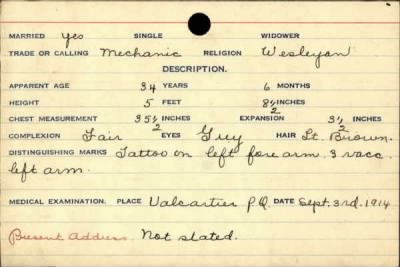 MARRIED yes SINGLE WIDOWER
TRADE OR CALLING Mechanic RELIGION Wesleyan
DESCRIPTION.
APPARENT AGE 34 YEARS 6 MONTHS
HEIGHT 5 FEET 8 1/2 INCHES
CHEST MEASUREMENT 35 1/2 INCHES EXPANSION 3 1/2 INCHES
COMPLEXION Fair EYES Grey HAIR Lt. Brown.
DISTINGUISHING MARKS Tattoo on left fore arm. 3 vacc.
left arm.
MEDICAL EXAMINATION. PLACE Valcartier P.Q. DATE Sept. 3rd. 1914
Present Address. Not stated.